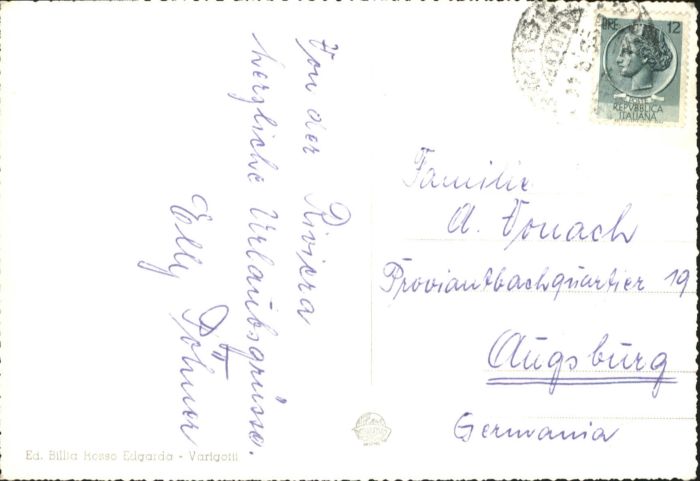 Von der Riviera
herzliche Urlaubsgrüsse.
Elly
LIRE 12
POSTE
REPVBBLICA
ITALIANA
Familie
A. Vonach
Proviantbachquartier 19
Augsburg
Germania
Ed. Billia Rosso Edgarda - Varigotti